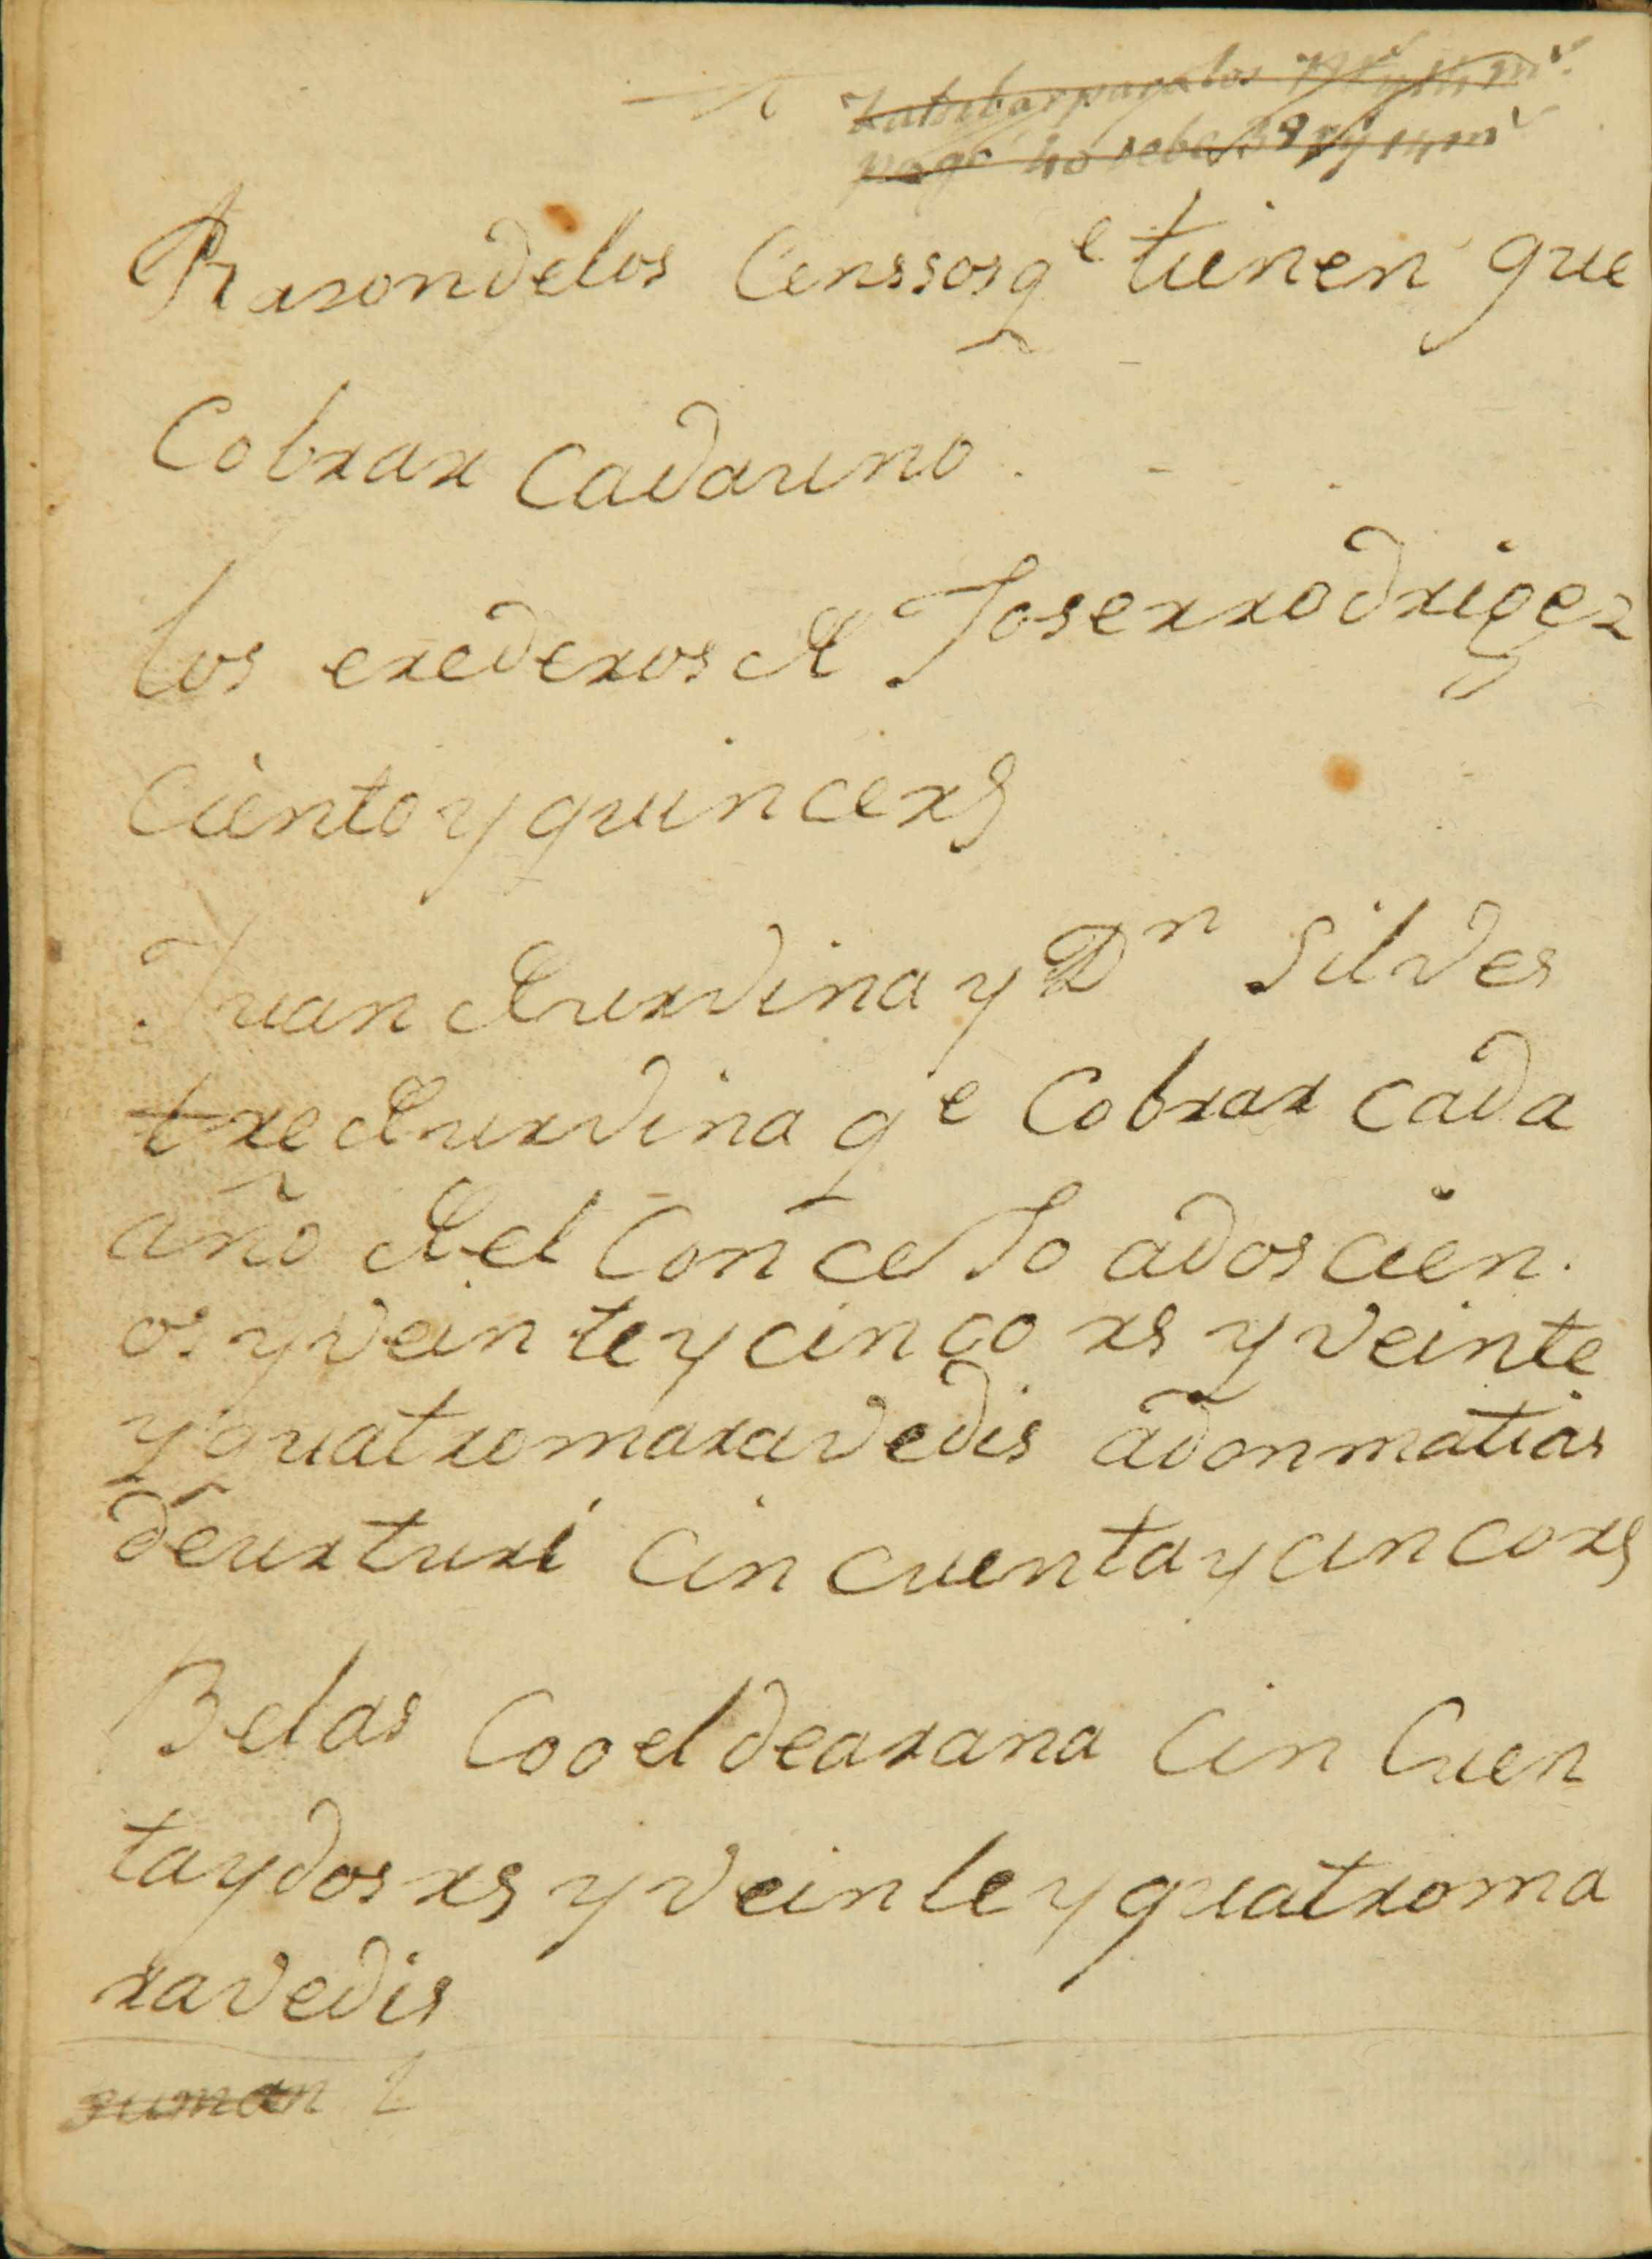 pago 40 debe 39 r y 14 m
Rasondelos Censsosqe tienen que
Cobrar Cadauno.
los erederos de Joserrodrigez
Ciento y quince rs
Juan deurdina y Dn Silves
tre deurdina qe Cobrar cada
año del Conce Jo adoscien.
os y veinte y cinco rs y veinte
y quatromaravedis adonmatias
deurturi Cincuenta y cinco rs
Belas Cooel dearana Cin Cuen
taydos rs y veinte y quatroma
ravedis
suman